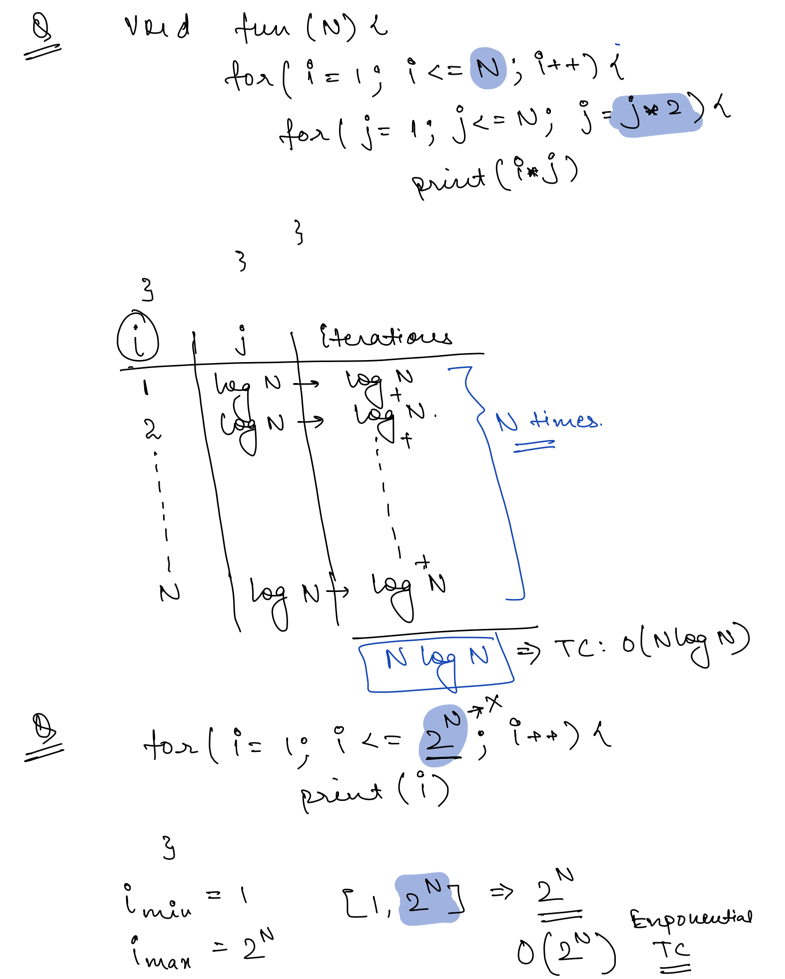 Q void fun (N) {
for ( i = 1 ; i <= N ; i++ ) {
for ( j = 1 ; j <= N ; j = j * 2 ) {
print ( i * j )
}
}
}
i j iterations
1 log N → log N
+
2 log N → log N.
+
N times.
+
N log N → log N
N log N ⇒ TC: O(N log N)
Q for ( i = 1 ; i <= 2^N → x ; i++ ) {
print ( i )
}
i min = 1 [1, 2^N] ⇒ 2^N
i max = 2^N O(2^N) Exponential
TC